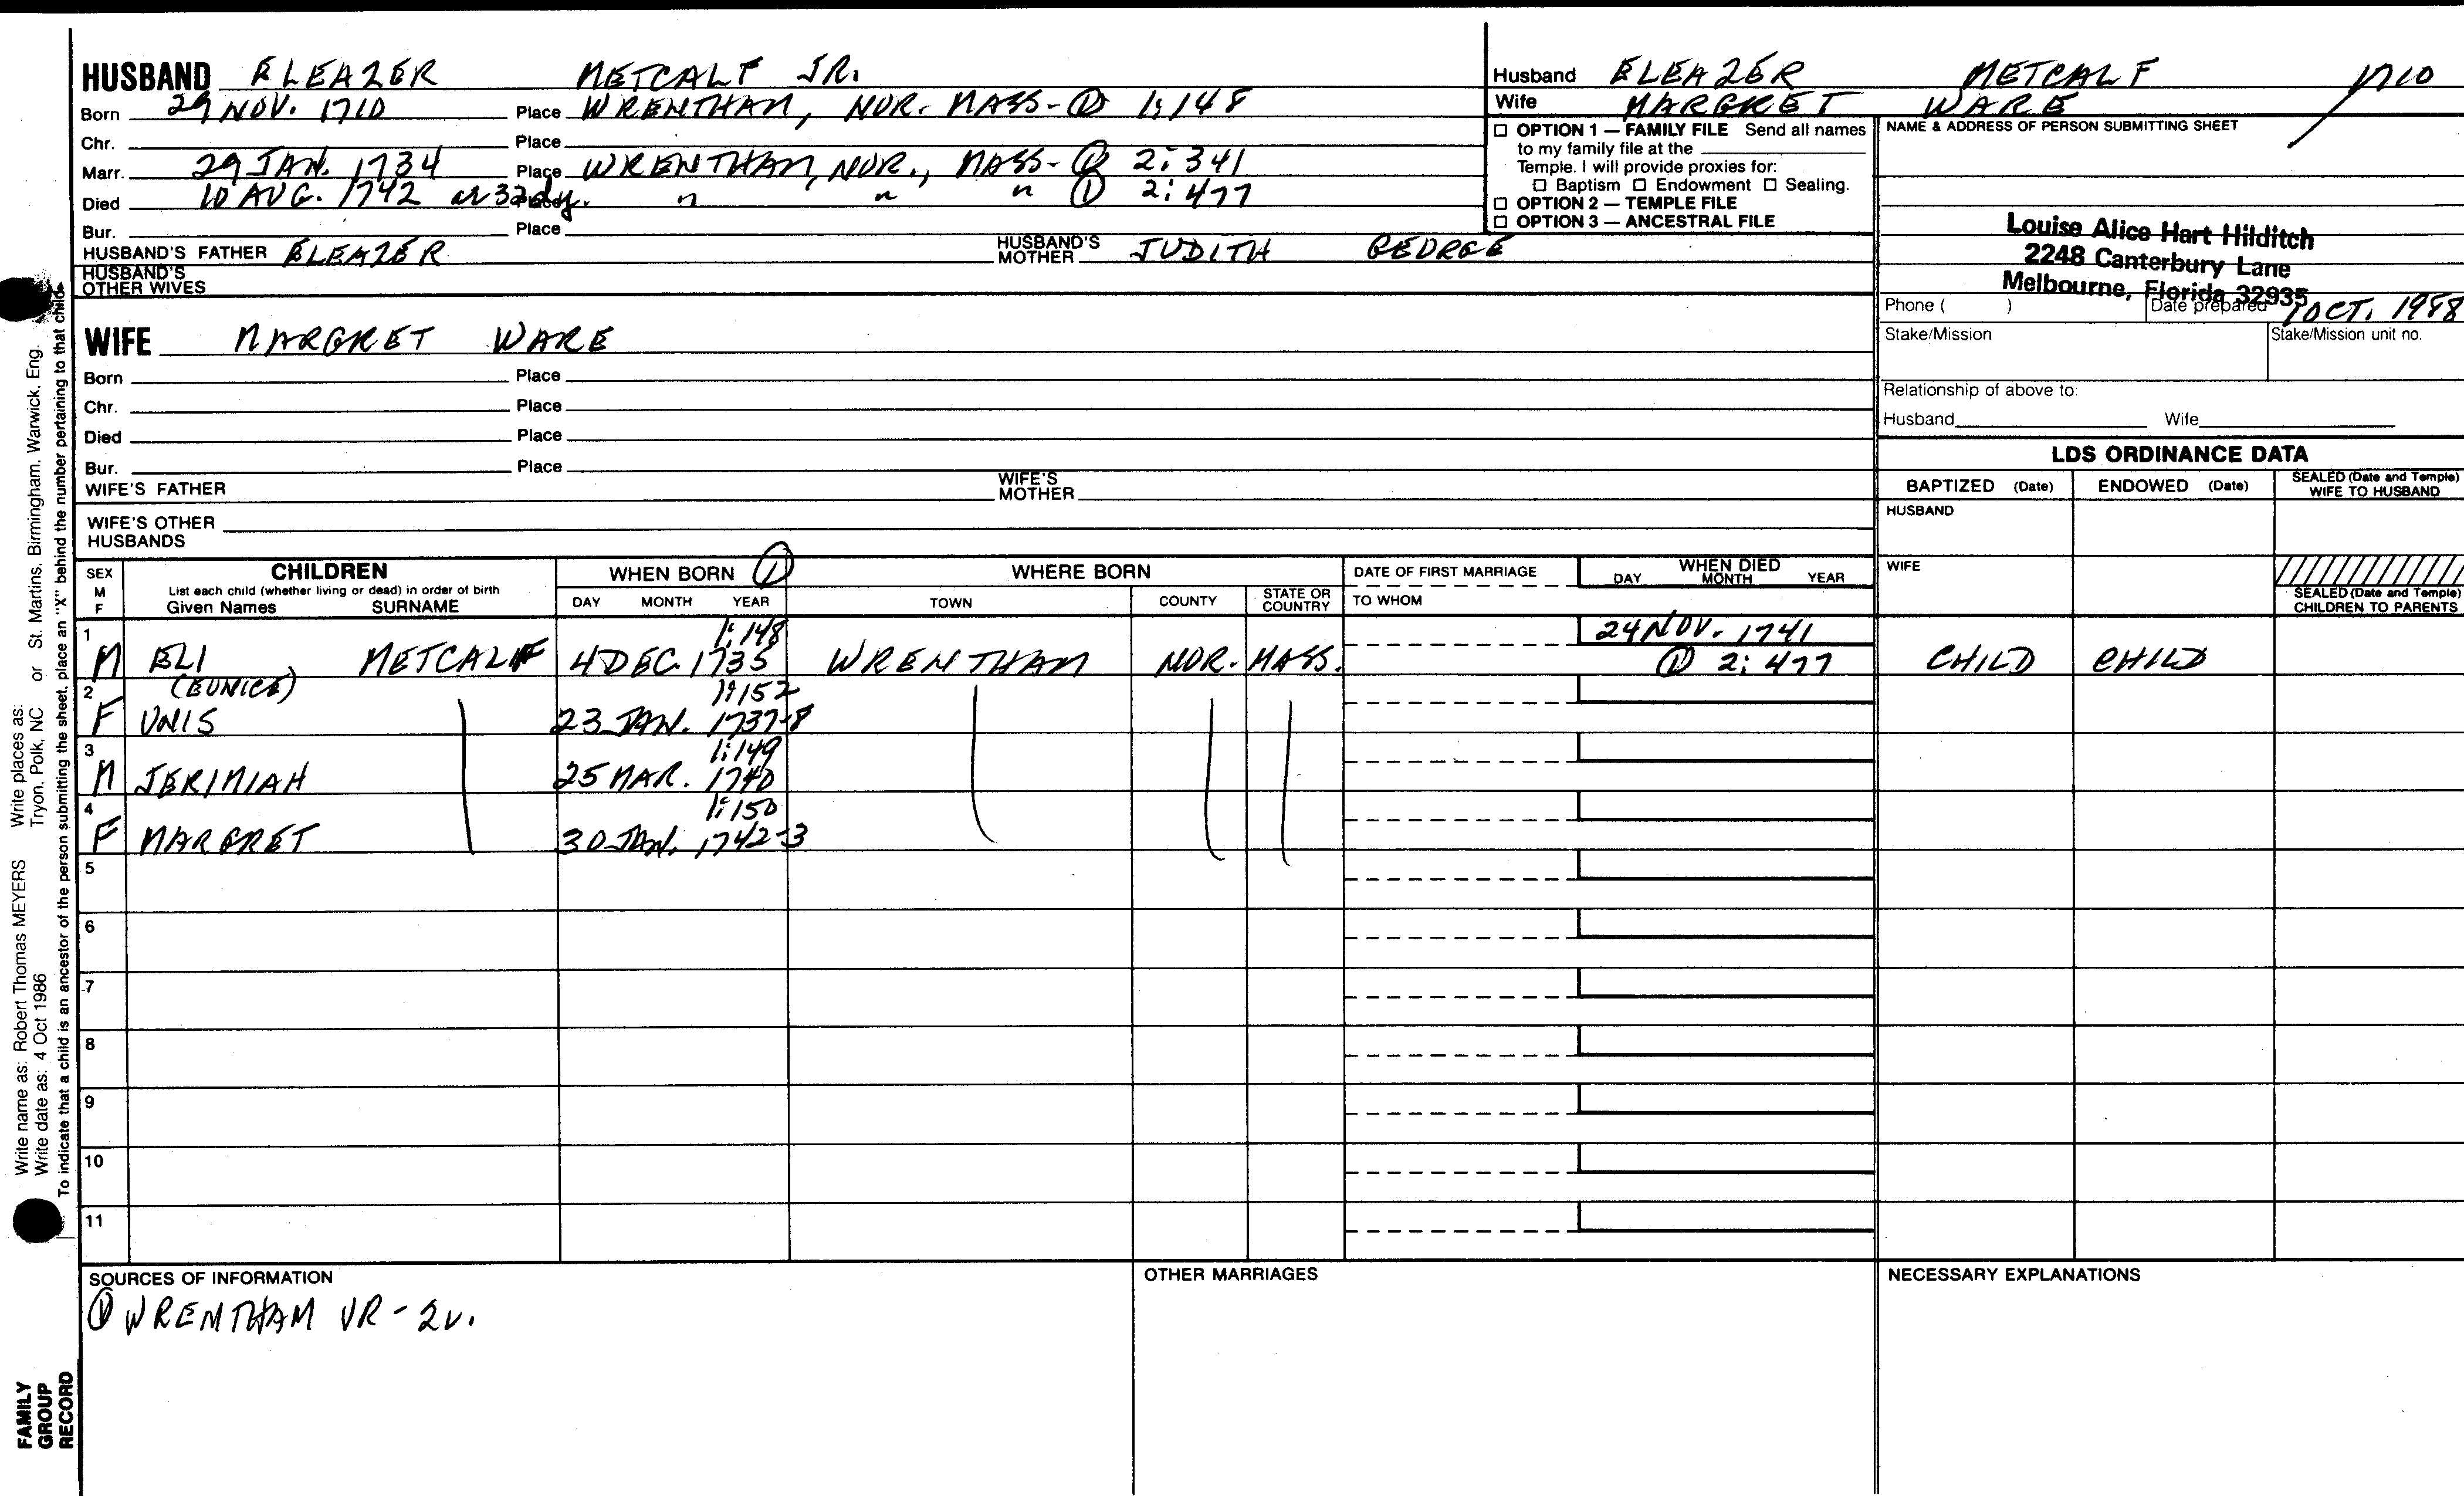 HUSBAND ELEAZER METCALF JR.
Born 29 NOV. 1710 Place WRENTHAM, NOR. MASS - ① 1:148
Chr. Place
Marr. 29 JAN. 1734 Place WRENTHAM, NOR., MASS - ① 2:341
Died 10 AUG. 1742 Place " " " ① 2:477
Bur. Place
HUSBAND'S FATHER ELEAZER HUSBAND'S MOTHER JUDITH GEORGE
HUSBAND'S OTHER WIVES
WIFE MARGRET WARE
Born Place
Chr. Place
Died Place
Bur. Place
WIFE'S FATHER WIFE'S MOTHER
WIFE'S OTHER HUSBANDS
Husband ELEAZER METCALF 1710
Wife MARGRET WARE
☐ OPTION 1 — FAMILY FILE Send all names
to my family file at the
Temple. I will provide proxies for:
☐ Baptism ☐ Endowment ☐ Sealing.
☐ OPTION 2 — TEMPLE FILE
☐ OPTION 3 — ANCESTRAL FILE
NAME & ADDRESS OF PERSON SUBMITTING SHEET
Louise Alice Hart Hilditch
2248 Canterbury Lane
Melbourne, Florida 32935
Phone ( ) Date prepared OCT. 1988
Stake/Mission Stake/Mission unit no.
Relationship of above to:
Husband Wife
LDS ORDINANCE DATA
BAPTIZED (Date) ENDOWED (Date) SEALED (Date and Temple) WIFE TO HUSBAND
HUSBAND
WIFE
SEALED (Date and Temple) CHILDREN TO PARENTS
SEX M F
CHILDREN
List each child (whether living or dead) in order of birth
Given Names SURNAME
WHEN BORN ①
DAY MONTH YEAR
WHERE BORN
TOWN COUNTY STATE OR COUNTRY
DATE OF FIRST MARRIAGE
TO WHOM
WHEN DIED
DAY MONTH YEAR
1 1:148 24 NOV. 1741
M ELI METCALF 4 DEC. 1735 WRENTHAM NOR. MASS. ① 2:477 CHILD CHILD
2 (EUNICE) 1:152
F UNIS 23 JAN. 1737-8
3 1:149
M JERIMIAH 25 MAR. 1740
4 1:150
F MARGRET 30 JAN. 1742-3
5
6
7
8
9
10
11
SOURCES OF INFORMATION
① WRENTHAM VR - 2v.
OTHER MARRIAGES
NECESSARY EXPLANATIONS
Write name as: Robert Thomas MEYERS Write places as: St. Martins, Birmingham, Warwick, Eng.
Write date as: 4 Oct 1986 Tryon, Polk, NC or
To indicate that a child is an ancestor of the person submitting the sheet, place an "X" behind the number pertaining to that child.
FAMILY
GROUP
RECORD